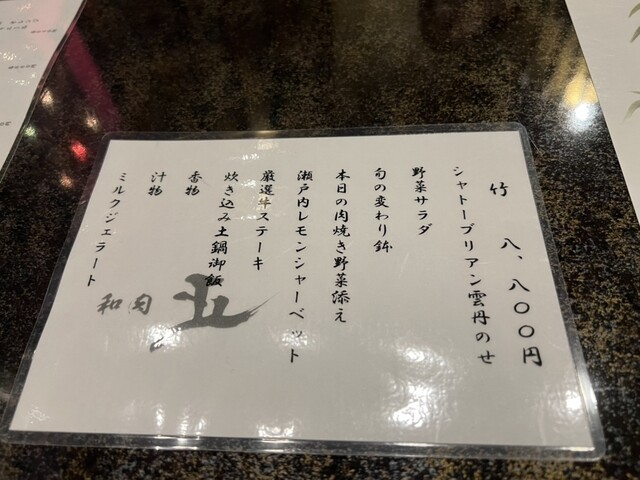 竹　八、八〇〇円
シャトーブリアン雲丹のせ
野菜サラダ
旬の変わり鉢
本日の肉焼き野菜添え
瀬戸内レモンシャーベット
厳選牛ステーキ
炊き込み土鍋御飯
香物
汁物
ミルクジェラート
和肉